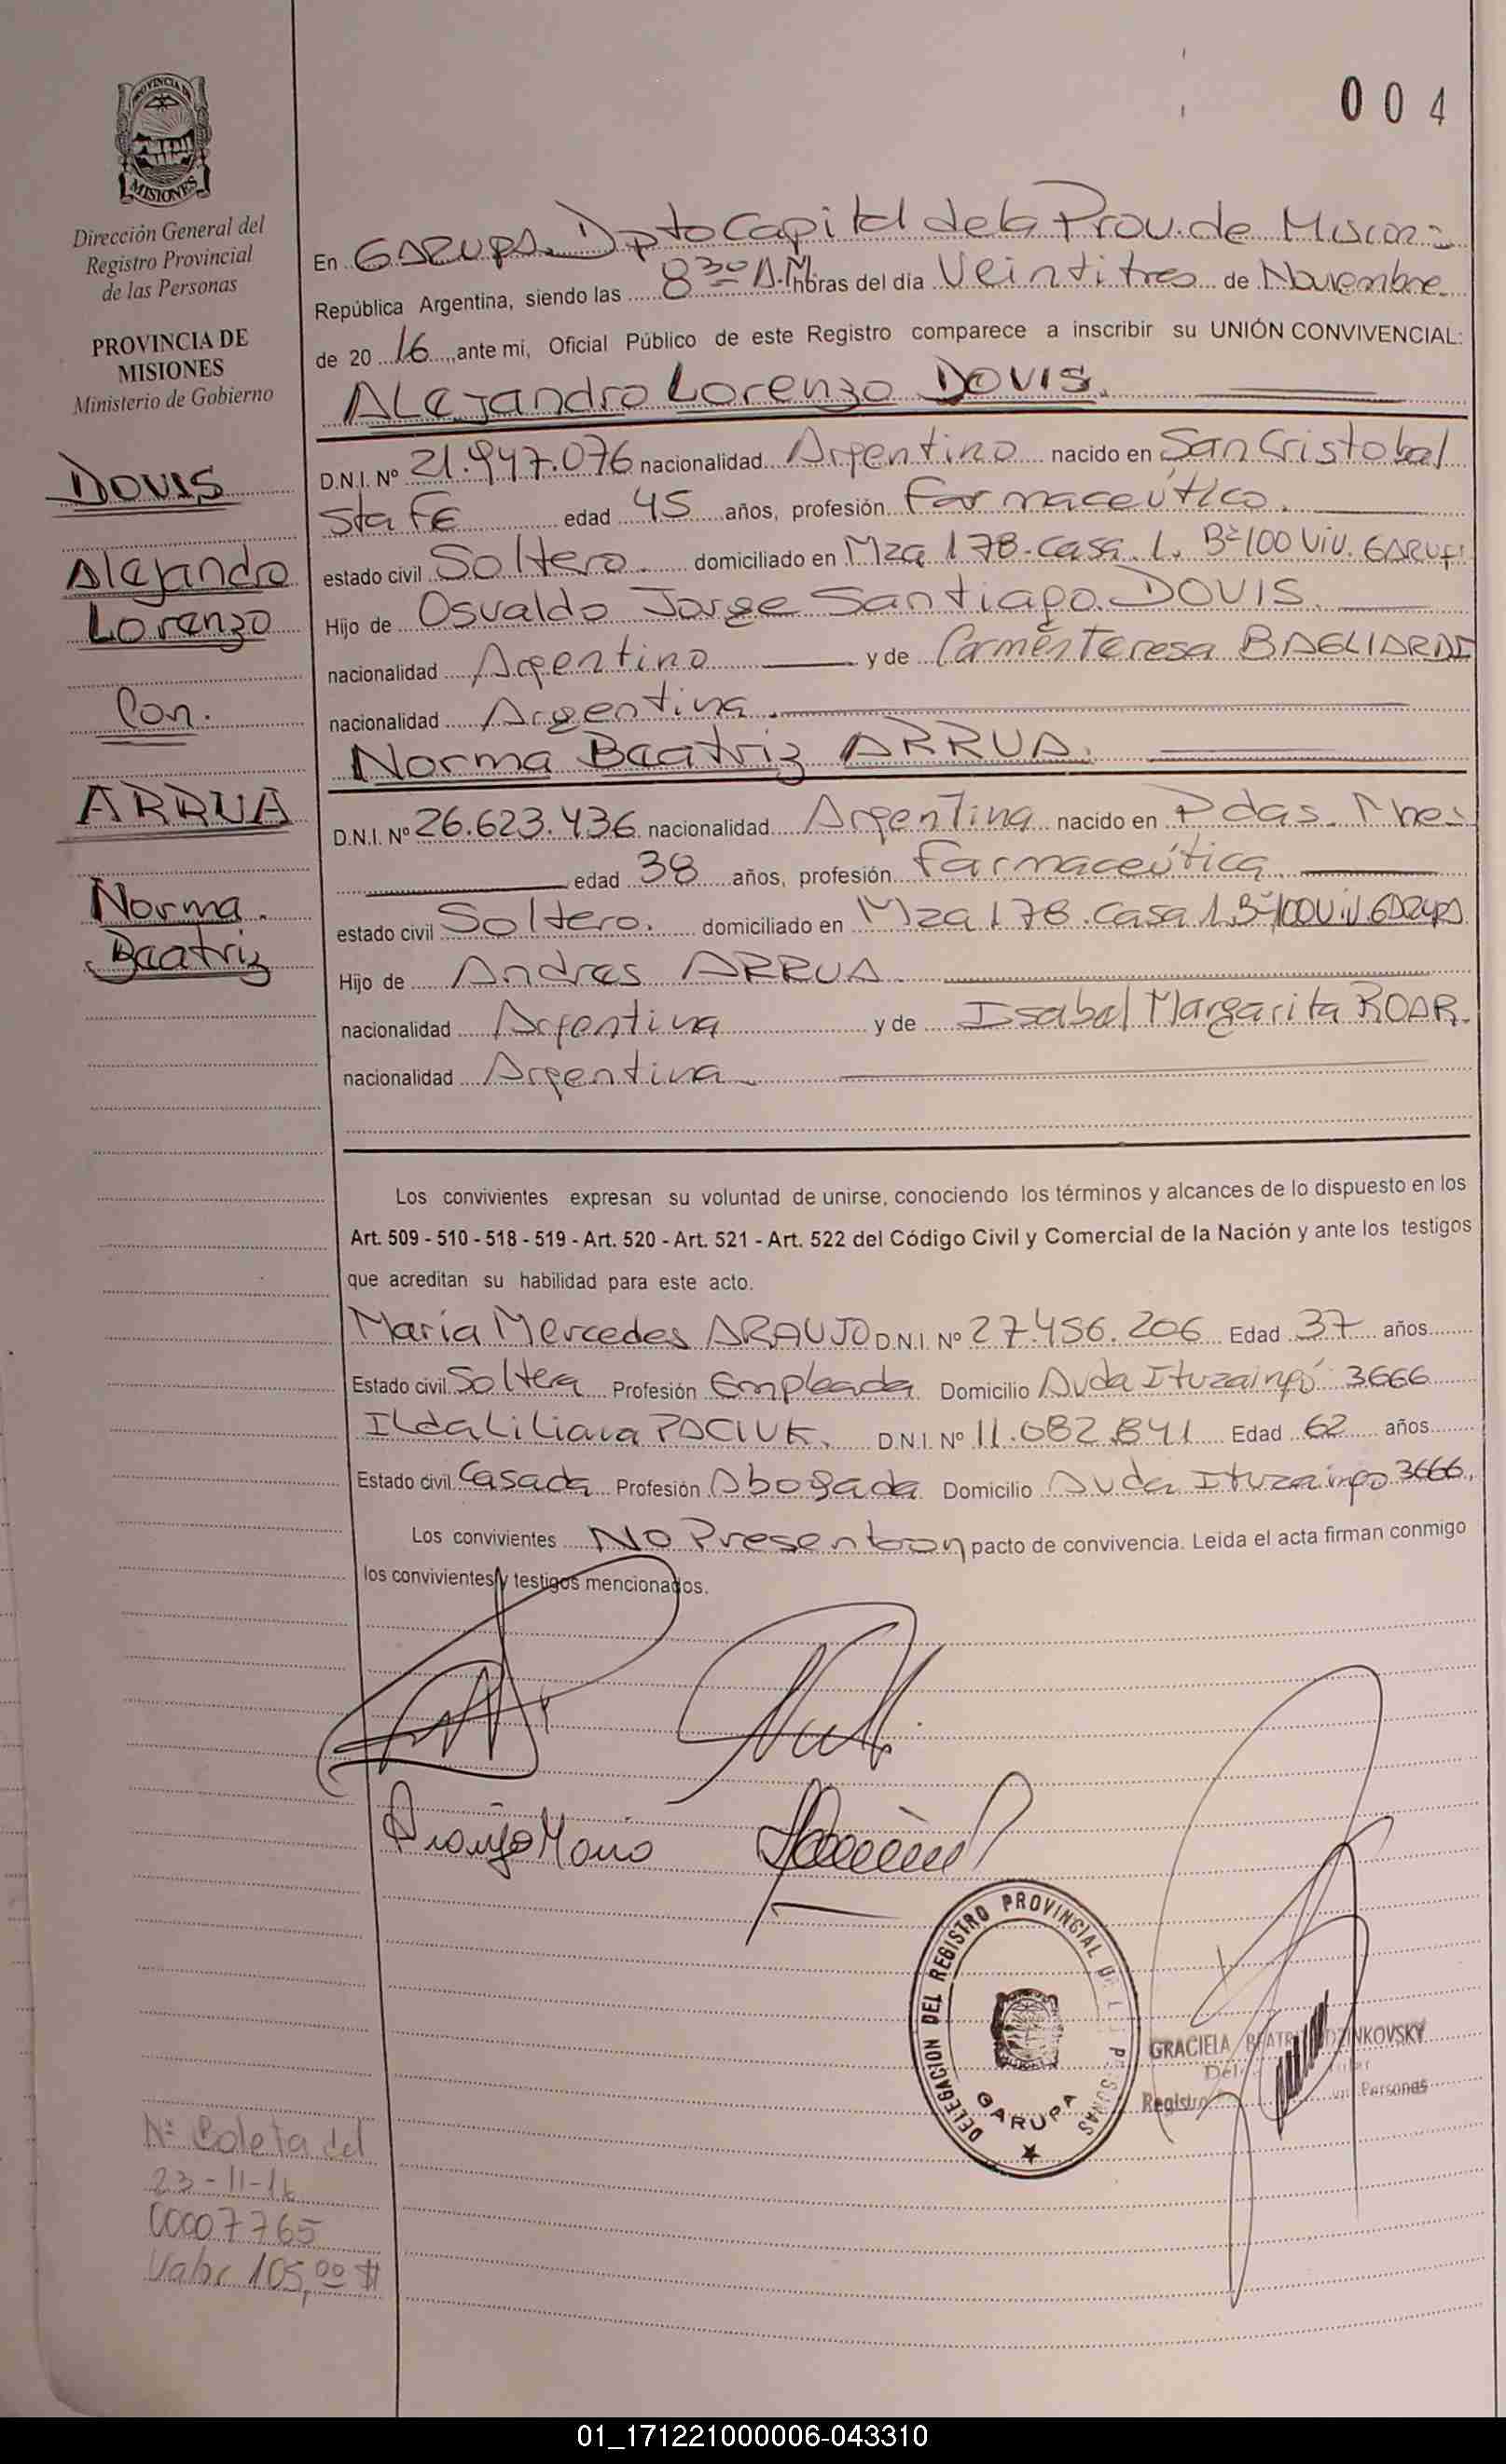 004
PROVINCIA DE
MISIONES
Dirección General del
Registro Provincial
de las Personas
PROVINCIA DE
MISIONES
Ministerio de Gobierno
DOVIS
Alejandro
Lorenzo
Con.
ARRUA
Norma.
Beatriz
En GARUPA. Dpto Capital de la Prov. de Mision=
República Argentina, siendo las 8 30 A.M. horas del día Veintitres de Noviembre
de 20 16 ,ante mi, Oficial Público de este Registro comparece a inscribir su UNIÓN CONVIVENCIAL:
ALejandro Lorenzo DOVIS.
D.N.I. Nº 21.947.076 nacionalidad Argentino nacido en San Cristobal
Sta FE edad 45 años, profesión Farmaceútico.
estado civil Soltero. domiciliado en Mza 178. Casa. 1. Bº 100 Viv. GARUP
Hijo de Osvaldo Jorge Santiago DOVIS.
nacionalidad Argentino y de Carmen Teresa BAGLIARDI
nacionalidad Argentina.
Norma Beatriz ARRUA.
D.N.I. Nº 26.623.436 nacionalidad Argentina nacido en Pdas. Mnes
edad 38 años, profesión Farmaceútica.
estado civil Soltero. domiciliado en Mza 178. Casa 1. Bº 100 Viv. GARUPA
Hijo de Andres ARRUA.
nacionalidad Argentina y de Isabel Margarita ROAR.
nacionalidad Argentina
Los convivientes expresan su voluntad de unirse, conociendo los términos y alcances de lo dispuesto en los
Art. 509 - 510 - 518 - 519 - Art. 520 - Art. 521 - Art. 522 del Código Civil y Comercial de la Nación y ante los testigos
que acreditan su habilidad para este acto.
María Mercedes ARAUJO D.N.I. Nº 27.456.206 Edad 37 años
Estado civil Soltera Profesión Empleada Domicilio Avda Ituzaingó 3666
ILda Liliana PACIUK. D.N.I. Nº 11.082.841 Edad 62 años
Estado civil Casada Profesión Abogada Domicilio Avda Ituzaingo 3666.
Los convivientes No Presentan pacto de convivencia. Leida el acta firman conmigo
los convivientes y testigos mencionados.
Araujo Maria
DELEGACION DEL REGISTRO PROVINCIAL DE LAS PERSONAS
GARUPA
GRACIELA
Registro Personas
Nº Boleta del
23-11-16
00007765
Valor 105,00 $
01_171221000006-043310